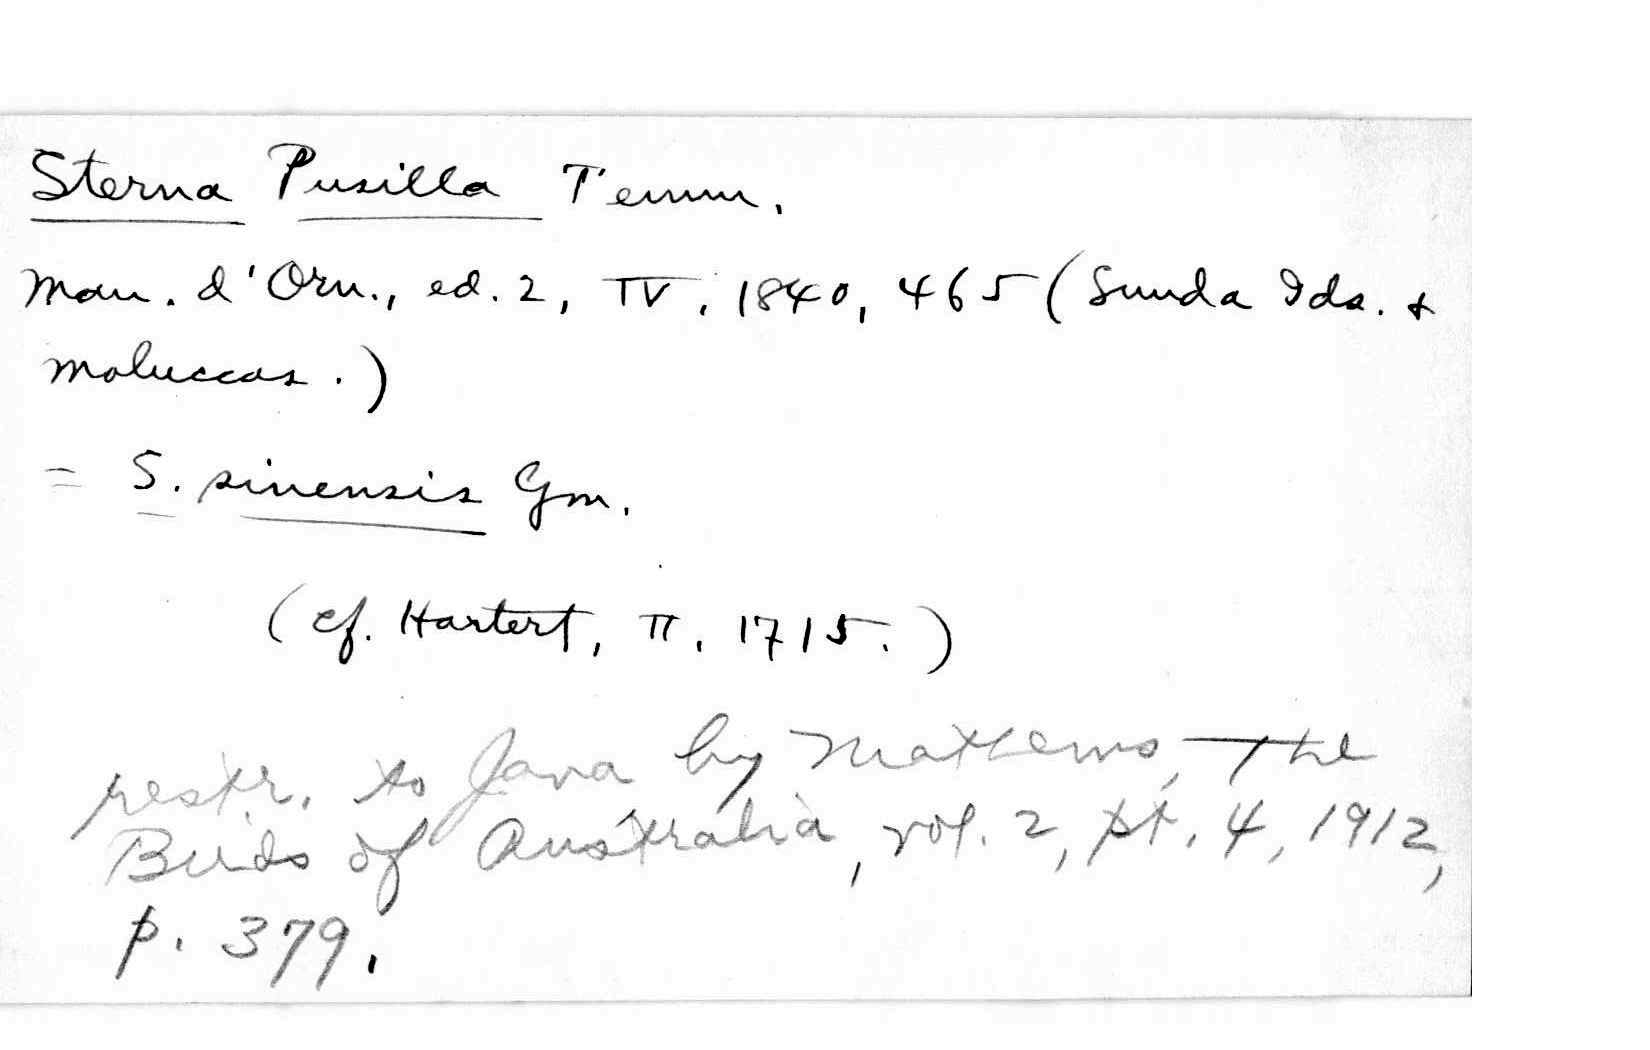 Sterna Pusilla Temm.
Man. d'Orn., ed. 2, IV, 1840, 465 (Sunda Ids. &
Moluccas.)
= S. sinensis Gm.
(cf. Hartert, II, 1715.)
restr. to Java by Mathews, The
Birds of Australia, vol. 2, pt. 4, 1912,
p. 379.